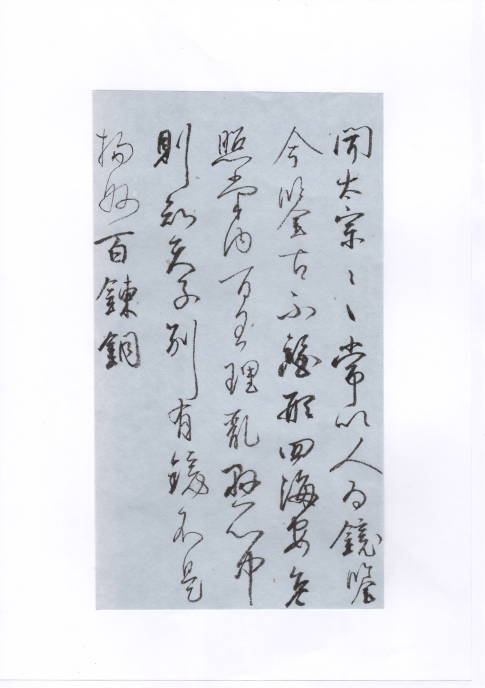 聞太宗〻〻常以人為鏡鑒
今鑒古不鑑形四海安危
照掌内百王理亂懸心中
則知天子別有鏡不是
揚州百鍊銅